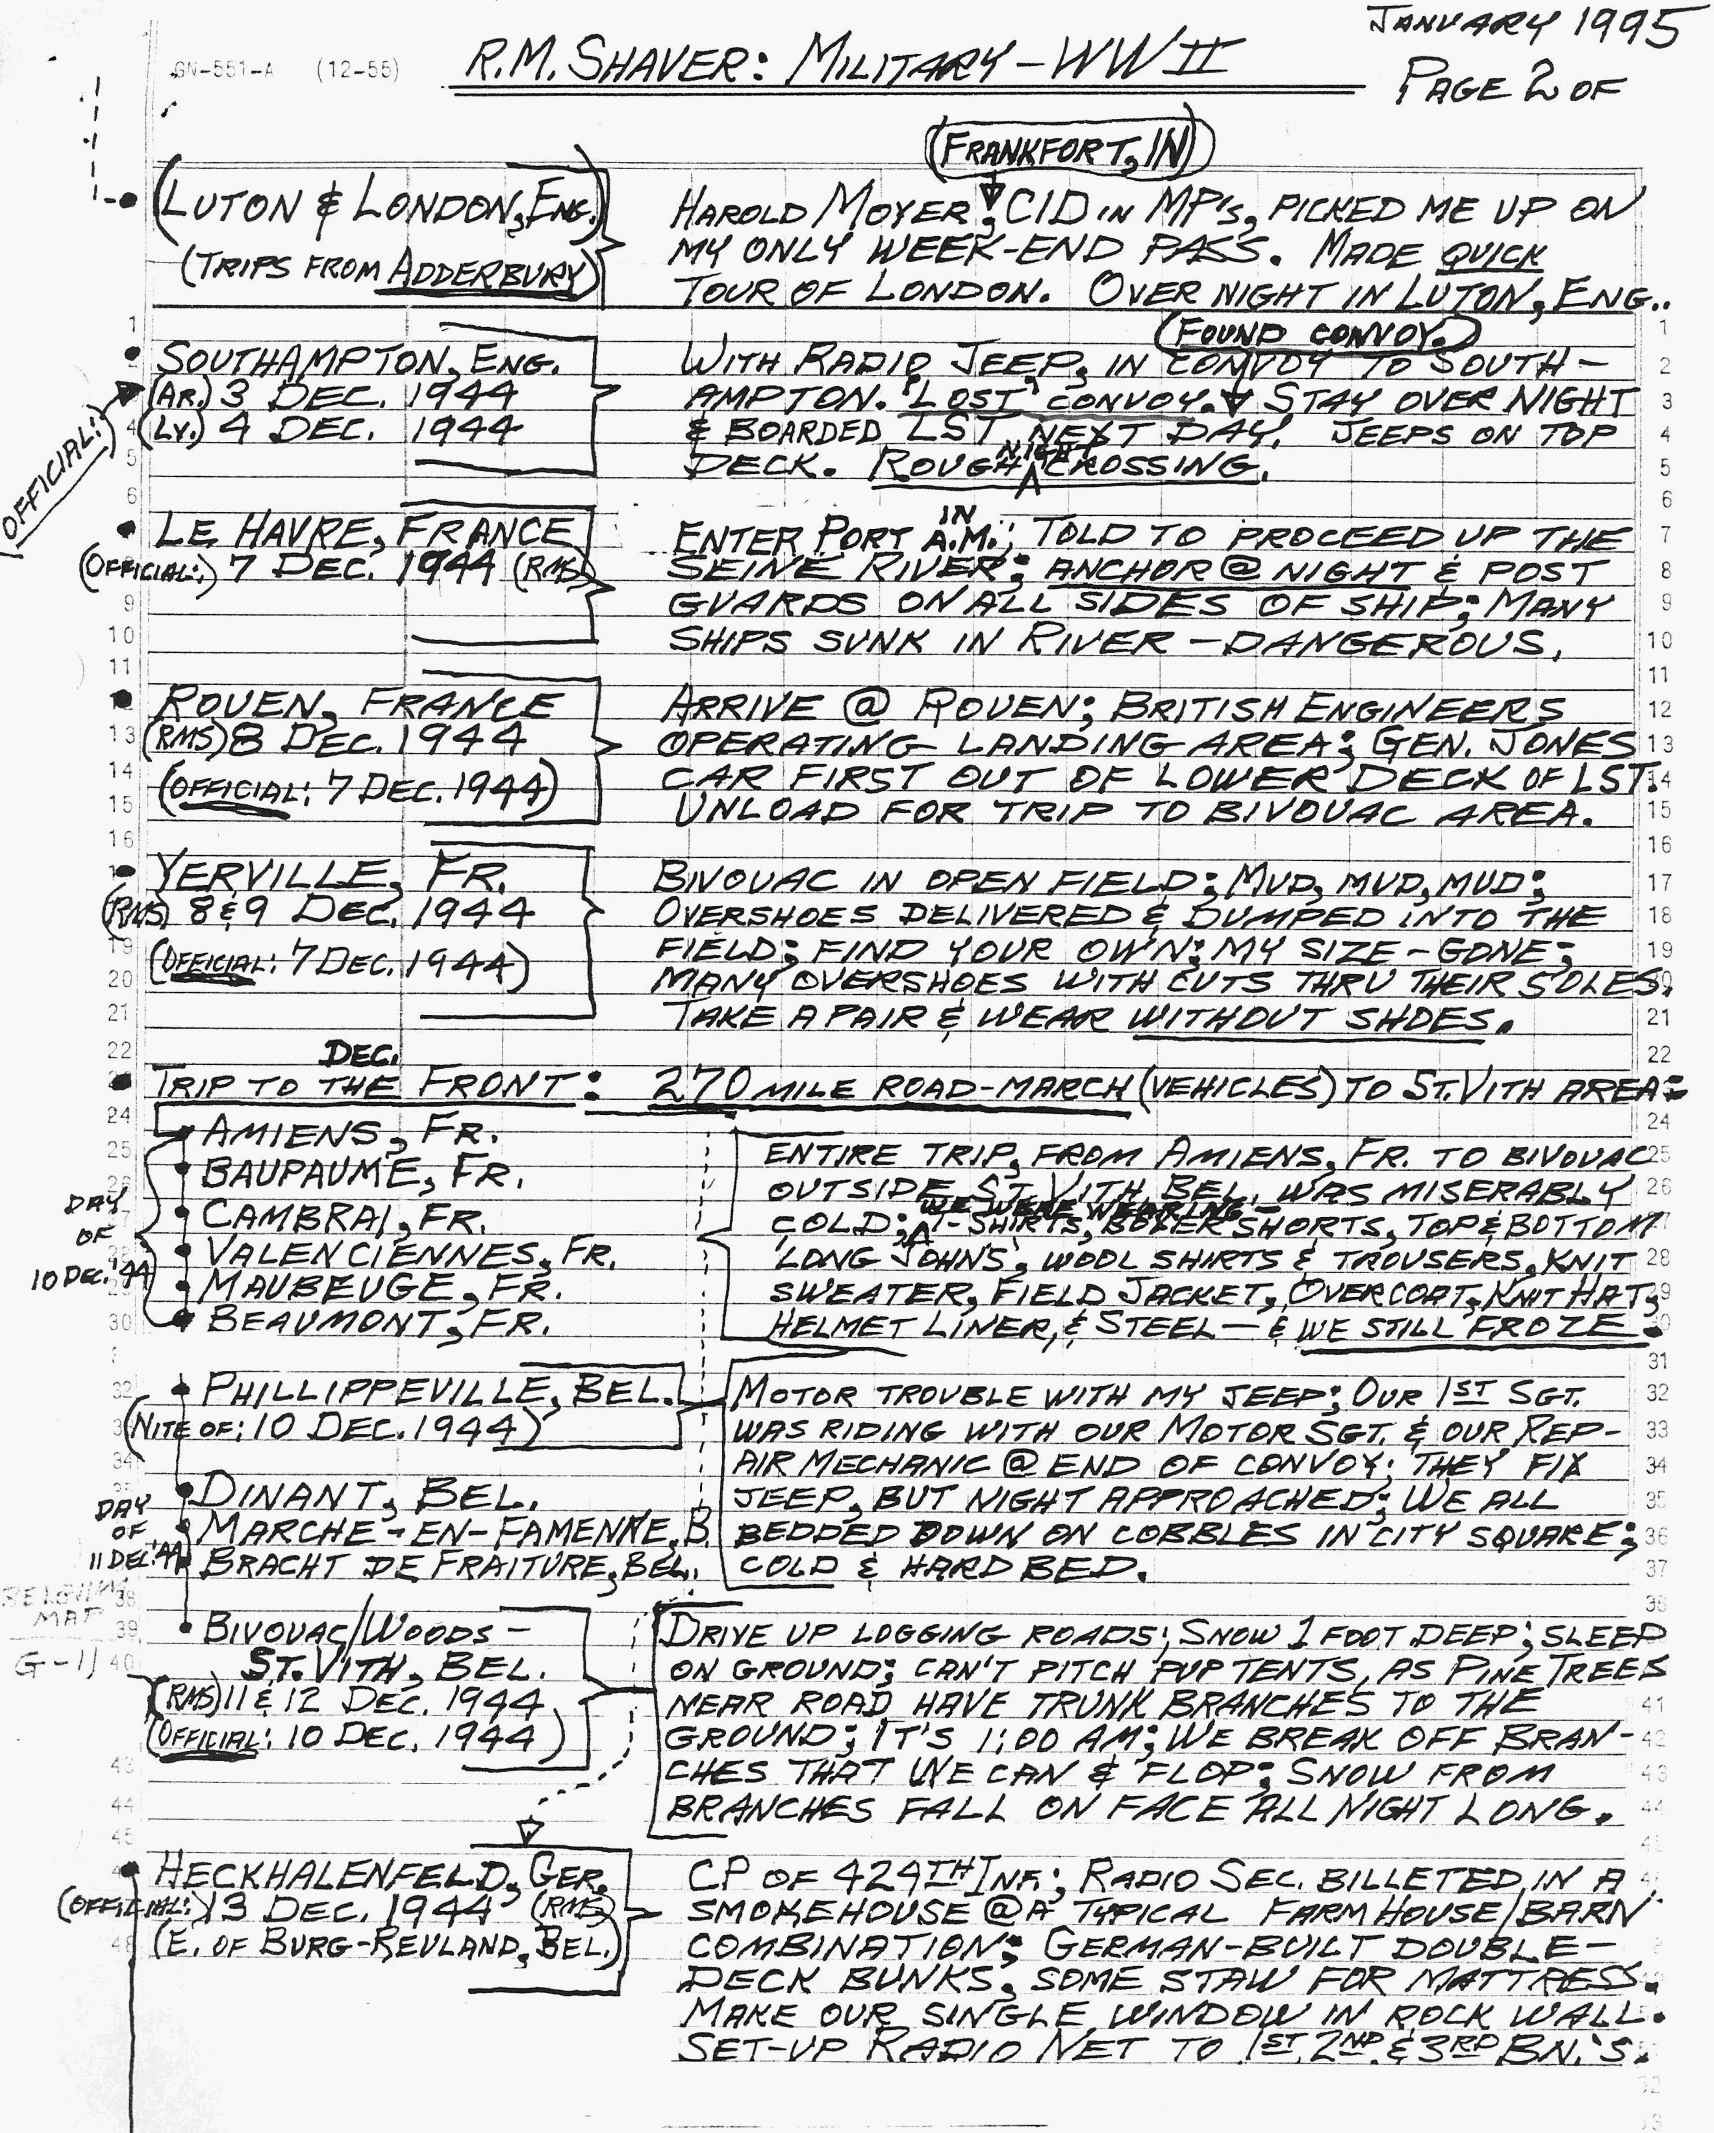 JANUARY 1995
GN-551-A (12-55)
R.M. SHAVER: MILITARY - WW II
PAGE 2 OF
(FRANKFORT, IN)
(LUTON & LONDON, ENG.)
(TRIPS FROM ADDERBURY)
HAROLD MOYER, CID IN MP's, PICKED ME UP ON
MY ONLY WEEK-END PASS. MADE QUICK
TOUR OF LONDON. OVER NIGHT IN LUTON, ENG..
(FOUND CONVOY.)
OFFICIAL:
SOUTHAMPTON, ENG.
(AR.) 3 DEC. 1944
(LV.) 4 DEC. 1944
WITH RADIO JEEP, IN CONVOY TO SOUTH-
AMPTON. "LOST" CONVOY. STAY OVER NIGHT
& BOARDED LST NEXT DAY. JEEPS ON TOP
DECK. ROUGH NIGHT CROSSING.
LE HAVRE, FRANCE
(OFFICIAL:) 7 DEC. 1944 (RMS)
ENTER PORT IN A.M.; TOLD TO PROCEED UP THE
SEINE RIVER; ANCHOR @ NIGHT & POST
GUARDS ON ALL SIDES OF SHIP; MANY
SHIPS SUNK IN RIVER - DANGEROUS.
ROUEN, FRANCE
(RMS) 8 DEC. 1944
(OFFICIAL: 7 DEC. 1944)
ARRIVE @ ROUEN; BRITISH ENGINEERS
OPERATING LANDING AREA; GEN. JONES
CAR FIRST OUT OF LOWER DECK OF LST.
UNLOAD FOR TRIP TO BIVOUAC AREA.
YERVILLE, FR.
(RMS) 8 & 9 DEC. 1944
(OFFICIAL: 7 DEC. 1944)
BIVOUAC IN OPEN FIELD; MUD, MUD, MUD;
OVERSHOES DELIVERED & DUMPED INTO THE
FIELD; FIND YOUR OWN; MY SIZE - GONE;
MANY OVERSHOES WITH CUTS THRU THEIR SOLES.
TAKE A PAIR & WEAR WITHOUT SHOES.
DEC.
TRIP TO THE FRONT: 270 MILE ROAD-MARCH (VEHICLES) TO ST. VITH AREA:
DAY
OF
10 DEC. '44
AMIENS, FR.
BAUPAUME, FR.
CAMBRAI, FR.
VALENCIENNES, FR.
MAUBEUGE, FR.
BEAUMONT, FR.
ENTIRE TRIP, FROM AMIENS, FR. TO BIVOUAC
OUTSIDE ST. VITH, BEL. WAS MISERABLY
COLD; WE WERE WEARING - T-SHIRTS, BOXER SHORTS, TOP & BOTTOM
'LONG JOHNS', WOOL SHIRTS & TROUSERS, KNIT
SWEATER, FIELD JACKET, OVERCOAT, KNIT HAT,
HELMET LINER, & STEEL - & WE STILL FROZE.
PHILLIPPEVILLE, BEL.
(NITE OF: 10 DEC. 1944)
MOTOR TROUBLE WITH MY JEEP; OUR 1ST SGT.
WAS RIDING WITH OUR MOTOR SGT. & OUR REP-
AIR MECHANIC @ END OF CONVOY; THEY FIX
JEEP, BUT NIGHT APPROACHED; WE ALL
BEDDED DOWN ON COBBLES IN CITY SQUARE;
COLD & HARD BED.
DAY
OF
11 DEC. '44
DINANT, BEL.
MARCHE-EN-FAMENNE, B.
BRACHT DE FRAITURE, BEL.
BELGIUM
MAP
G-11
BIVOUAC/WOODS -
ST. VITH, BEL.
(RMS) 11 & 12 DEC. 1944
(OFFICIAL: 10 DEC. 1944)
DRIVE UP LOGGING ROADS; SNOW 1 FOOT DEEP; SLEEP
ON GROUND; CAN'T PITCH PUP TENTS, AS PINE TREES
NEAR ROAD HAVE TRUNK BRANCHES TO THE
GROUND; IT'S 1:00 AM; WE BREAK OFF BRAN-
CHES THAT WE CAN & FLOP; SNOW FROM
BRANCHES FALL ON FACE ALL NIGHT LONG.
HECKHALENFELD, GER.
(OFFICIAL:) 13 DEC. 1944 (RMS)
(E. OF BURG-REULAND, BEL.)
CP OF 424TH INF.; RADIO SEC. BILLETED IN A
SMOKEHOUSE @ A TYPICAL FARM HOUSE/BARN
COMBINATION; GERMAN-BUILT DOUBLE-
DECK BUNKS, SOME STAW FOR MATTRESS.
MAKE OUR SINGLE WINDOW IN ROCK WALL.
SET-UP RADIO NET TO 1ST, 2ND & 3RD BN.'S.